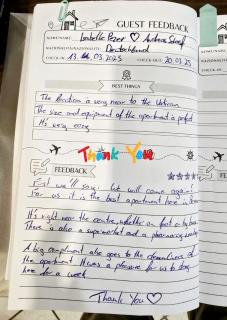 GUEST FEEDBACK
NAME/NAME: Isabelle Pezer ♡ Andreas
NATIONALITÀ/NATIONALITY: Deutschland
CHECK-IN: 13. 03.2025 CHECK-OUT: 20.03.25
BEST THINGS
The location is very near to the Vatican.
The size and equipment of the apartment is perfect
It's very cozy
Thank You
FEEDBACK
First we'll say, that we will come again!
For us it is the best apartment here in
It's right near the centre, whether on foot or by
There is also a supermarket and a pharmacy nearby
A big compliment also goes to the cleanliness of
the apartment. It was a pleasure for us to stay
here for a week
Thank You ♡